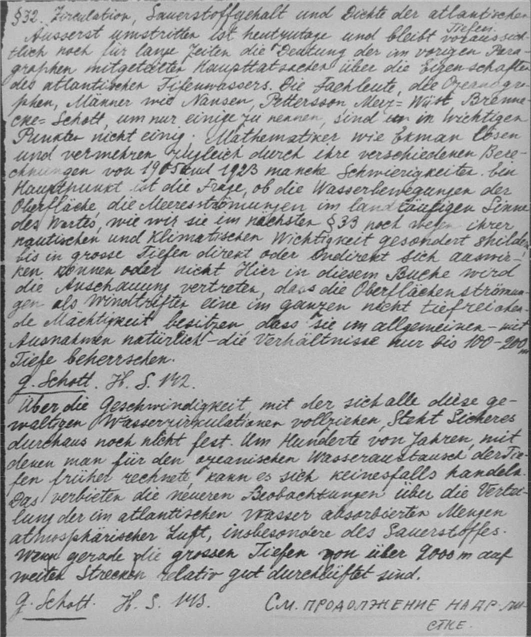 §32. Zirculation, Sauerstoffgehalt und Dichte der atlantischen
Tiefen
Ausserst umstritten ist heutzutage und bleibt voraussich
tlich noch für lange Zeiten die Deutung der im vorigen Para
graphen mitgeteilten Haupttatsachen über die Eigenschaften
des atlantischen Tifenwassers. Die Fachleute, die Ozeanogra
phen, Männer wie Nansen, Pettersson Merz-Wüst Brenne
cke-Schott, um nur einige zu nennen, sind in wichtigen
Punkten nicht einig. Mathematiker wie Ekman lösen
und vermehren zugleich durch ihre verschiedenen Bere-
chnungen von 1905 und 1923 manche Schwierigkeiten. Ein
Hauptpunkt ist die Frage, ob die Wasserbewegungen der
Oberfläche die Meeresströmungen im landläufigen Sinne
des Wortes, wie wir sie im nächsten §33 noch wegen ihrer
nautischen und Klimatischen Wichtigkeit gesondert schilde
bis in grosse Tiefen direkt oder indirekt sich auswir-
ken können oder nicht Hier in diesem Buche wird
die Anschauung vertreten, dass die Oberflächenströmun-
gen als Windtriften eine im ganzen nicht tiefreichen
de Mächtigkeit besitzen, dass sie im allgemeinen - mit
Ausnahmen natürlich - die Verhältnisse nur bis 100-200m
Tiefe beherrschen.
G. Schott. H. S. 142.
Über die Geschwindigkeit mit der sich alle diese ge-
waltigen Wasserzirkulationen vollziehen, steht Sicheres
durchaus noch nicht fest. Um Hunderte von Jahren, mit
denen man für den ozeanischen Wasseraustausch der Tie-
fen früher rechnete, kann es sich keinesfalls handeln
Das verbieten die neueren Beobachtungen über die Vertei-
lung der im atlantischen Wasser absorbierten Mengen
atmosphärischer Luft, insbesondere des Sauerstoffes.
Wenn gerade die grossen Tiefen von über 2000m auf
weiten Strecken relativ gut durchlüftet sind.
G. Schott. H. S. 143. См. ПРОДОЛЖЕНИЕ НА ДР. ЛИ-
СТКЕ.